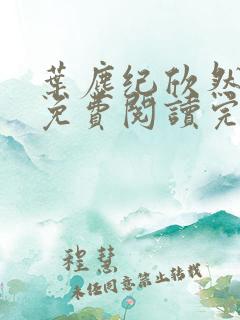 葉塵紀欣然
免費閱讀完
程慧
未经同意禁止转载